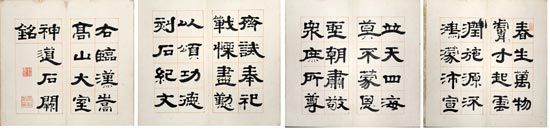 春生萬物
膚寸起雲
潤施源流
鴻濛沛宣
並天四海
莫不蒙恩
聖朝肅敬
眾庶所尊
齊誡奉祀
戰慄盡懃
以頌功德
刻石紀文
右臨漢嵩
高山大室
神道石闕
銘